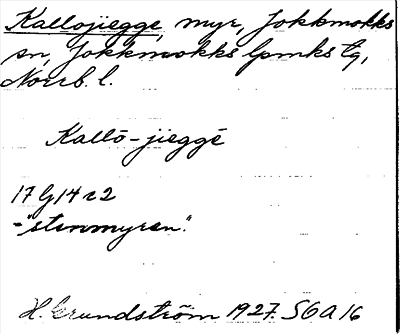 Kallojiegge, myr, Jokkmokks
sn, Jokkmokks lpmks tg,
Norrb. l.
Kallō-jieggē
17 G 14 c2
-"stenmyren".
H. Grundström 1927. SGA 16